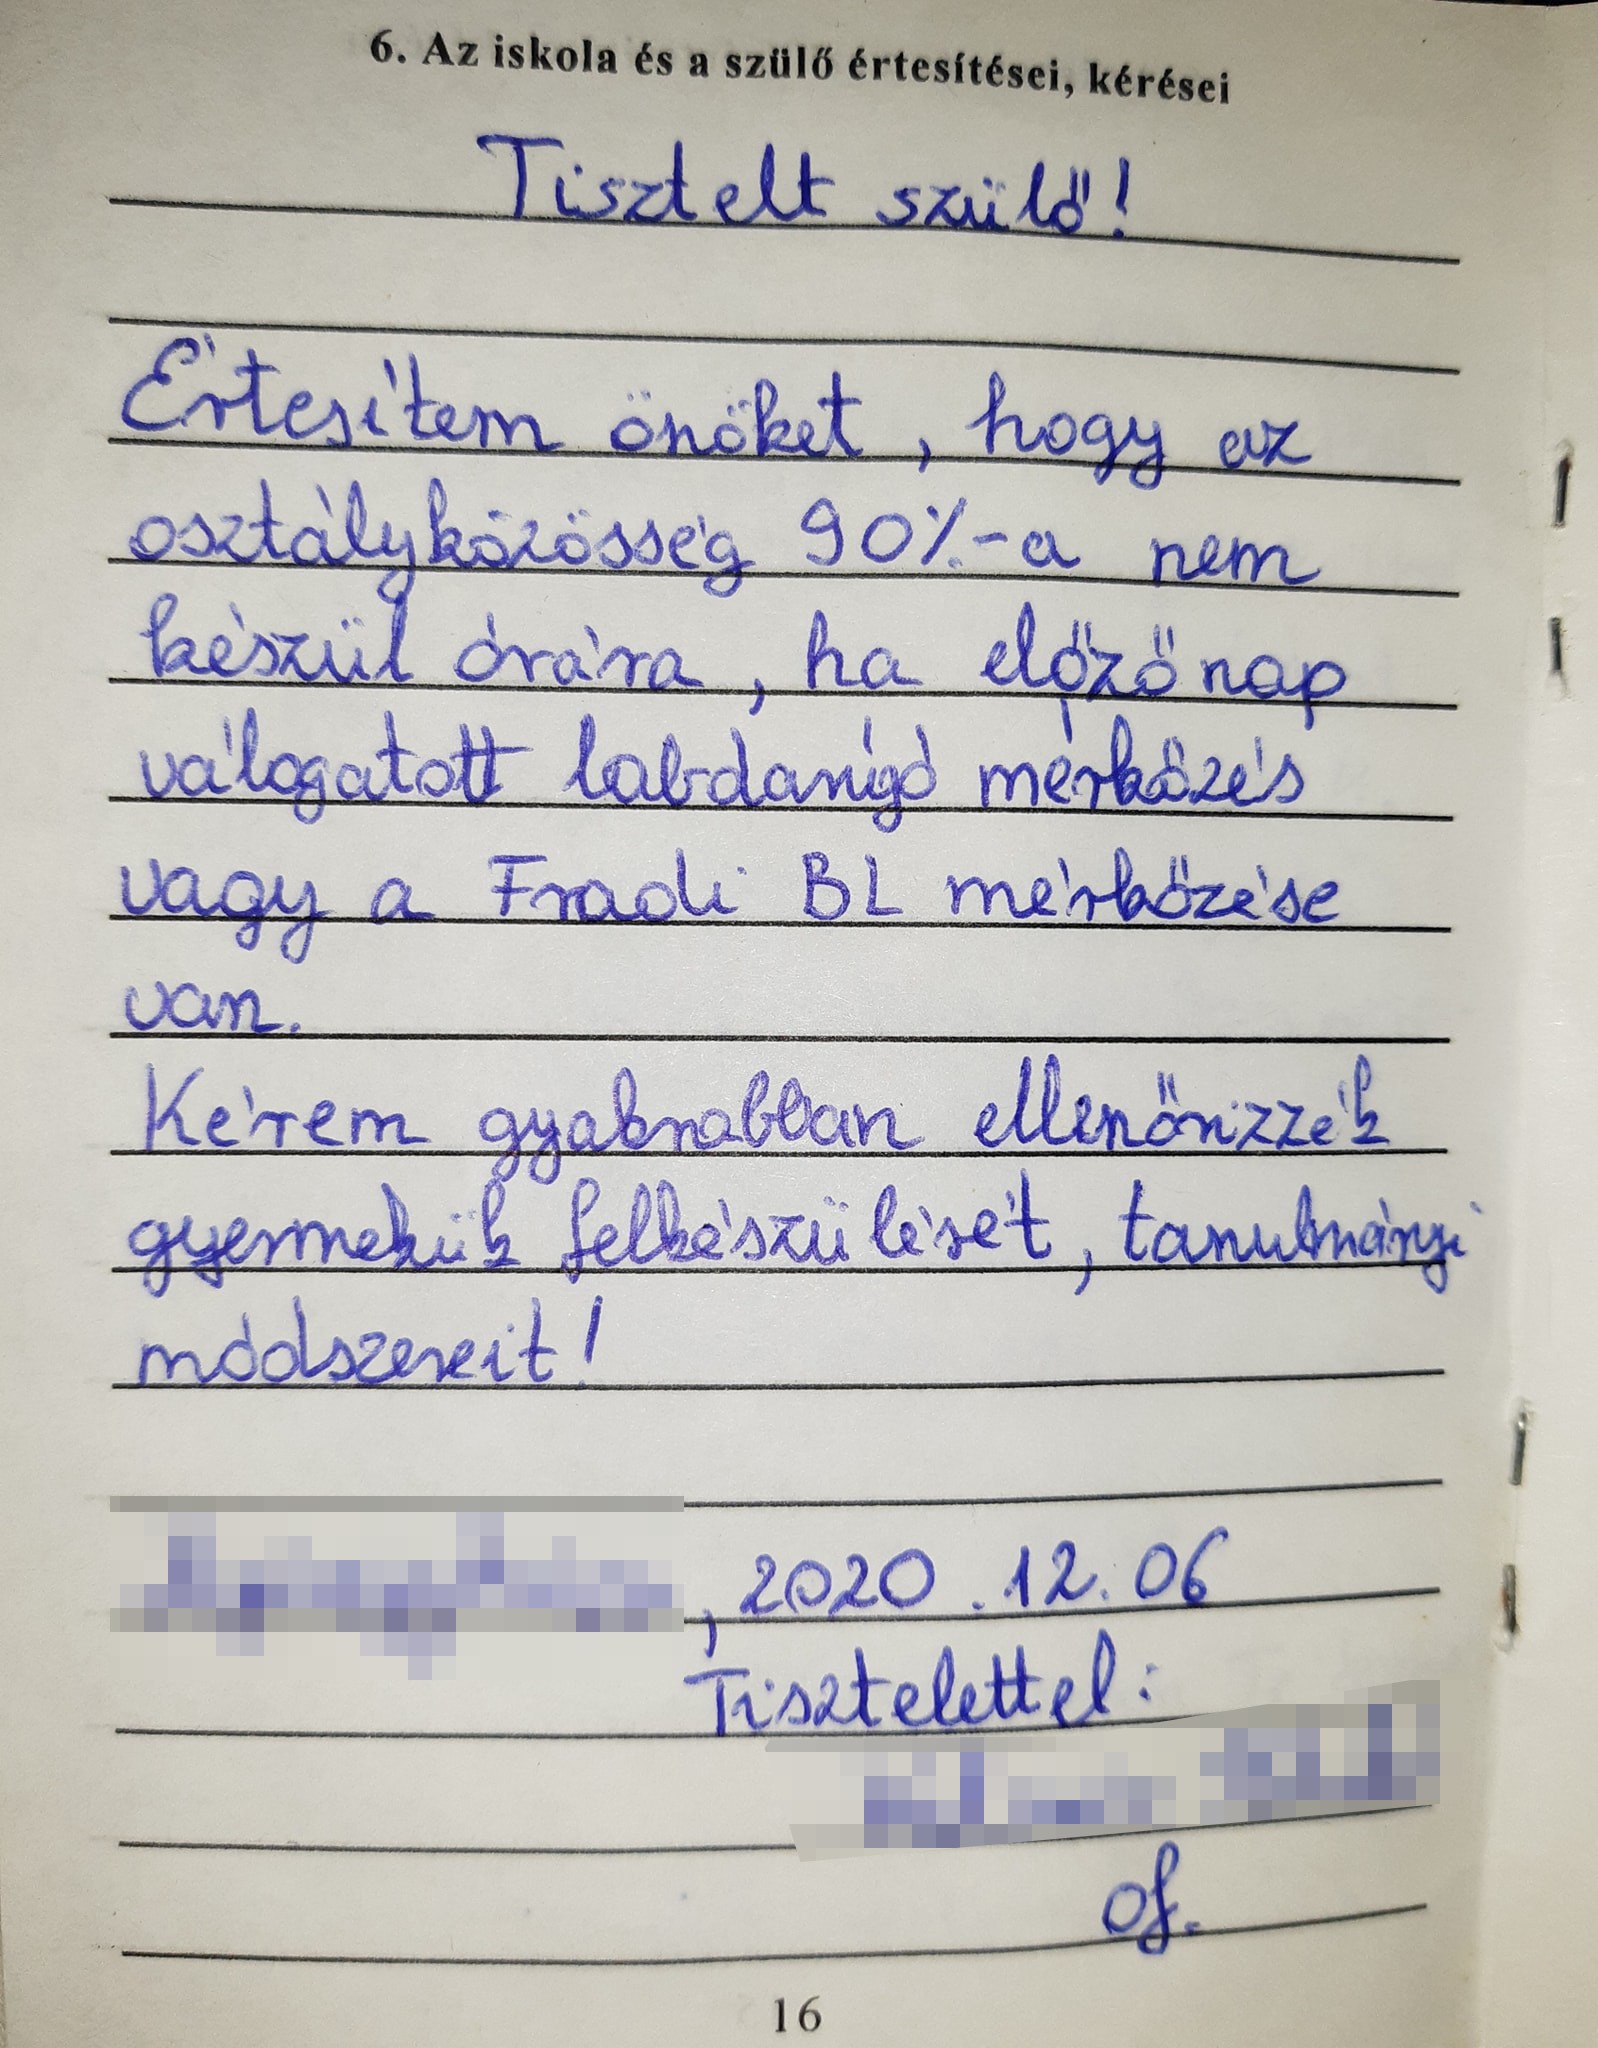 6. Az iskola és a szülő értesítései, kérései
Tisztelt szülő!
Értesítem önöket, hogy az
osztályközösség 90%-a nem
készül órára, ha előző nap
válogatott labdarúgó mérkőzés
vagy a Fradi BL mérkőzése
van.
Kérem gyakrabban ellenőrizzék
gyermekük felkészülését, tanulmányi
módszereit!
, 2020.12.06
Tisztelettel:
of.
16